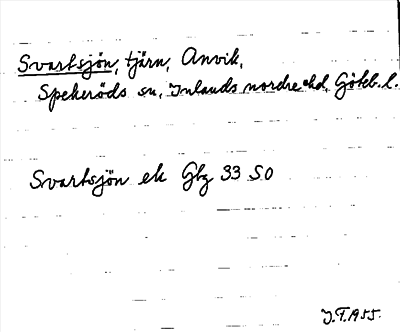 Svartsjön, tjärn, Anvik,
Spekeröds sn, Inlands nordre hd, Göteb. l.
Svartsjön ek Gbg 33 SO
J.T. 1955.